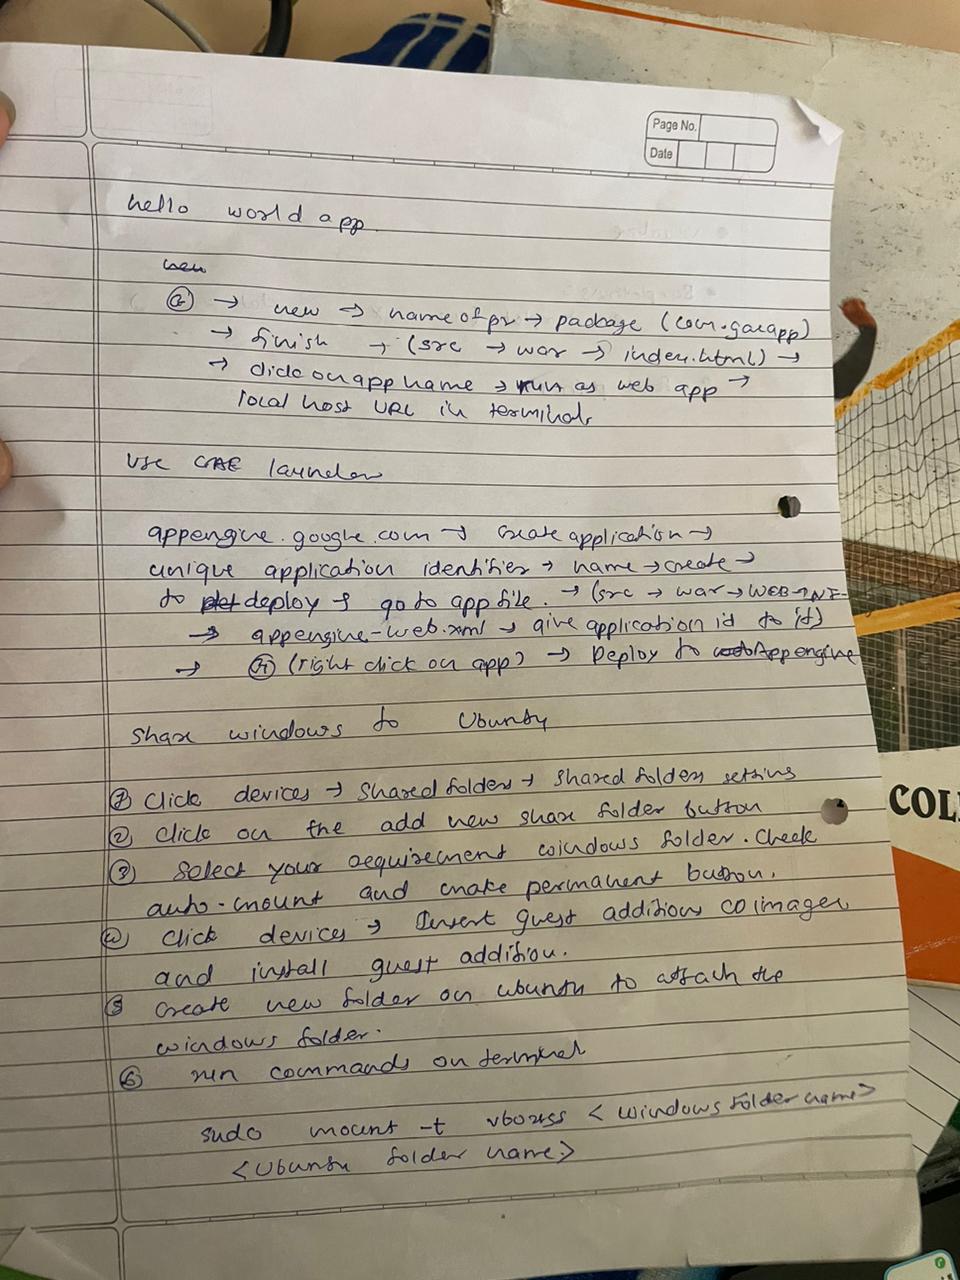 Page No.
Date
hello world app
new
G → new → name of pr → package (com.gaeapp)
→ finish → (src → war → index.html) →
→ click on app name → run as web app →
local host URL in terminal
Use GAE launcher
appengine.google.com → create application →
unique application identifier → name → create →
to deploy → go to app file. → (src → war → WEB-INF-
→ appengine-web.xml → give application id to it)
→ (right click on app) → Deploy to App engine
Share windows to Ubuntu
① Click devices → shared folders → shared folders settins
② Click on the add new share folder button
③ Select your requirement windows folder. Check
auto-mount and make permanent button.
④ Click devices → Insert guest additions CD images
and install guest addition.
⑤ Create new folder on ubuntu to attach the
windows folder.
⑥ run commands on terminal
sudo mount -t vboxsf <windows folder name>
<Ubuntu folder name>
COL